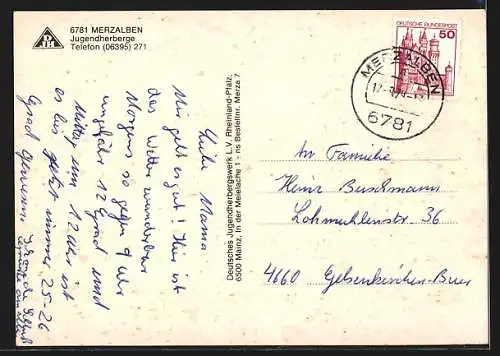 6781 MERZALBEN
Jugendherberge
Telefon (06395) 271
Liebe Mama
Mir geht es gut! Hier ist
das Wetter wunderbar
Morgens so gegen 9 Uhr
ungefähr 12 Grad und
Mittag um 12 Uhr ist
es bis jetzt immer 25-26
Grad gewesen
Deutsches Jugendherbergswerk L.V. Rheinland-Pfalz
6500 Mainz, In der Meielache 1 - ns Bestellnr. Merza 7
DEUTSCHE BUNDESPOST
50
MERZALBEN
6781
An Familie
Heinz Buschmann
Lohmühlenstr. 36
4660 Gelsenkirchen-Buer